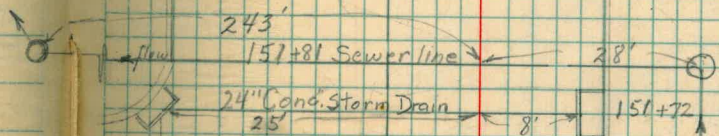 243'
flow 151+81 Sewer line 28'
24" Conc. Storm Drain 151+72
25' 8'